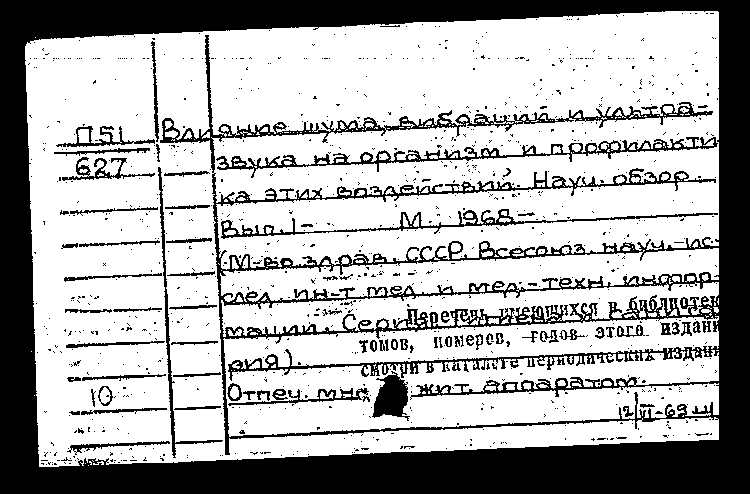 П51 Влияние шума, вибраций и ультра-
627 звука на организм и профилакти
ка этих воздействий. Науч. обзор.
Вып. 1- М., 1968-
(М-во здрав. СССР. Всесоюз. науч.-ис-
след. ин-т мед. и мед.-техн. инфор-
мации. Серия: Гигиена и санита
рия).
Перечень имеющихся в библиотек
томов, номеров, годов этого издани
смотри в каталоге периодических издани
10 Отпеч. мно жит. аппаратом.
12/VI-69